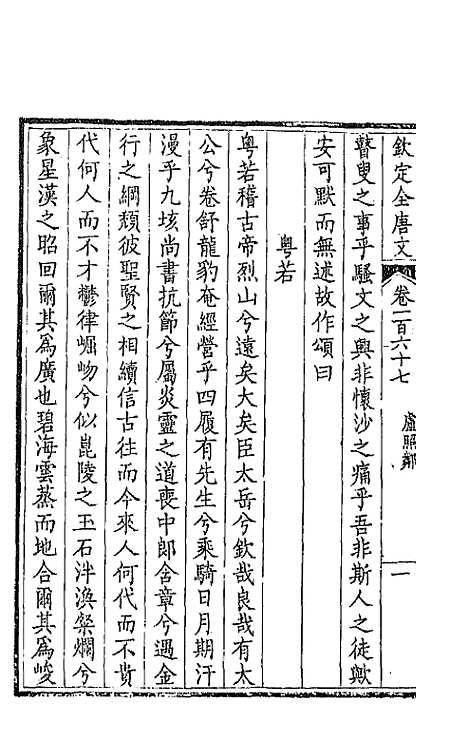 欽定全唐文 卷一百六十七 盧照鄰 一
瞽叟之事乎騷文之興非懷沙之痛乎吾非斯人之徒歟
安可默而無述故作頌曰
粵若
粵若稽古帝烈山兮遠矣大矣臣太岳兮欽哉良哉有太
公兮卷舒龍豹奄經營乎四履有先生兮乘騎日月期汗
漫乎九垓尚書抗節兮屬炎靈之道喪中郎含章兮遇金
行之綱頹彼聖賢之相續信古往而今來人何代而不貴
代何人而不才鬱律崛岉兮似崑陵之玉石泮渙粲爛兮
象星漢之昭回爾其爲廣也碧海雲蒸而地合爾其爲峻